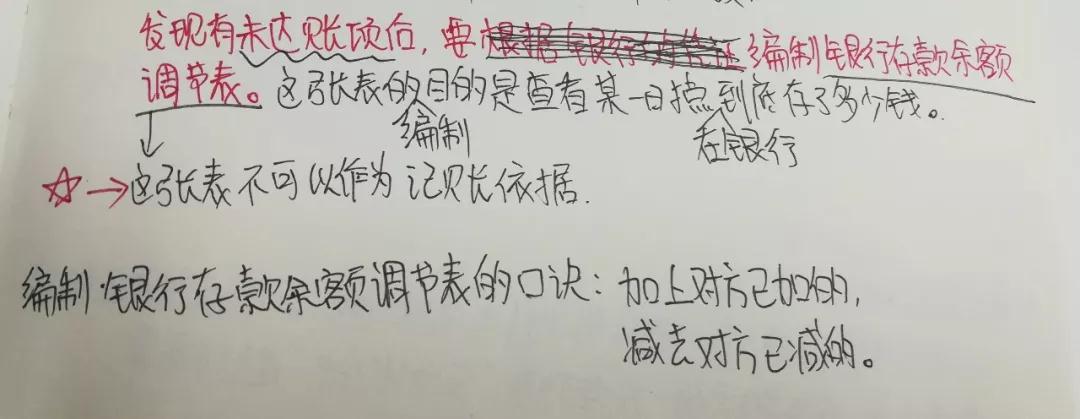 发现有未达账项后，要编制银行存款余额
调节表。这张表的目的是查看某一日控到底存了多少钱。
编制
在银行
☆→这张表不可以作为记账依据.
编制银行存款余额调节表的口诀：加上对方已加的，
减去对方已减的。